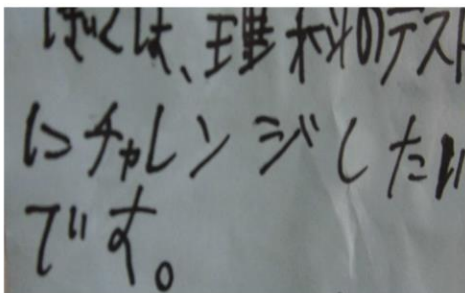 ぼくは、理科のテスト
にチャレンジしたい
です。